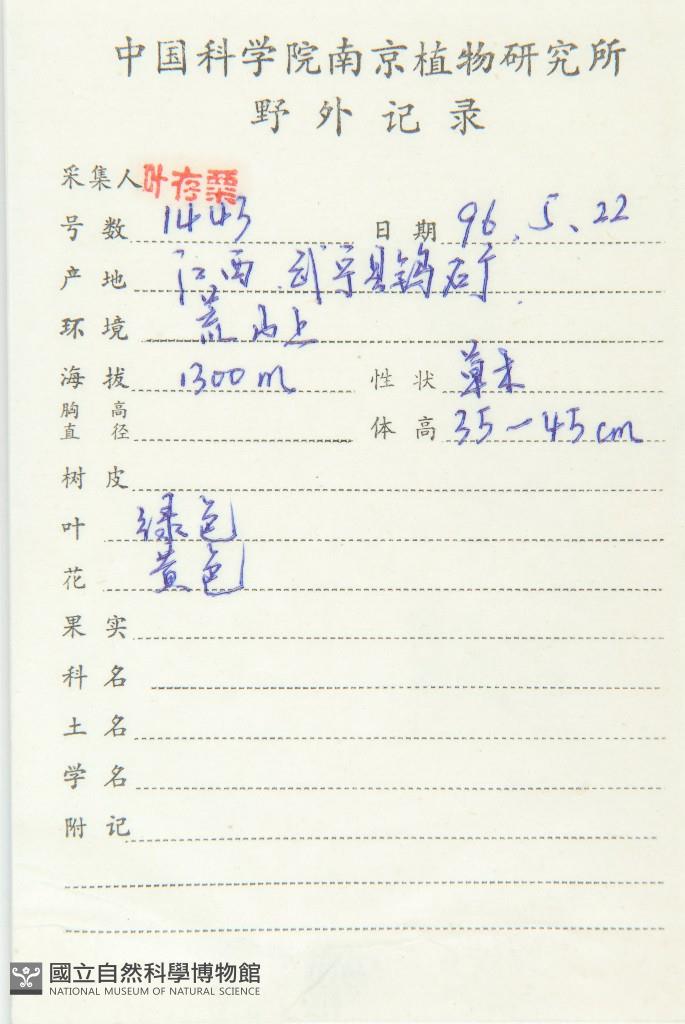 中国科学院南京植物研究所
野外记录
采集人 叶存粟
号数 1443 日期 96.5.22
产地 江西.武宁县钨石厂.
环境 荒山上
海拔 1300m 性状 草本
胸高直径 体高 35-45cm
树皮
叶 绿色
花 黄色
果实
科名
土名
学名
附记
國立自然科學博物館
NATIONAL MUSEUM OF NATURAL SCIENCE